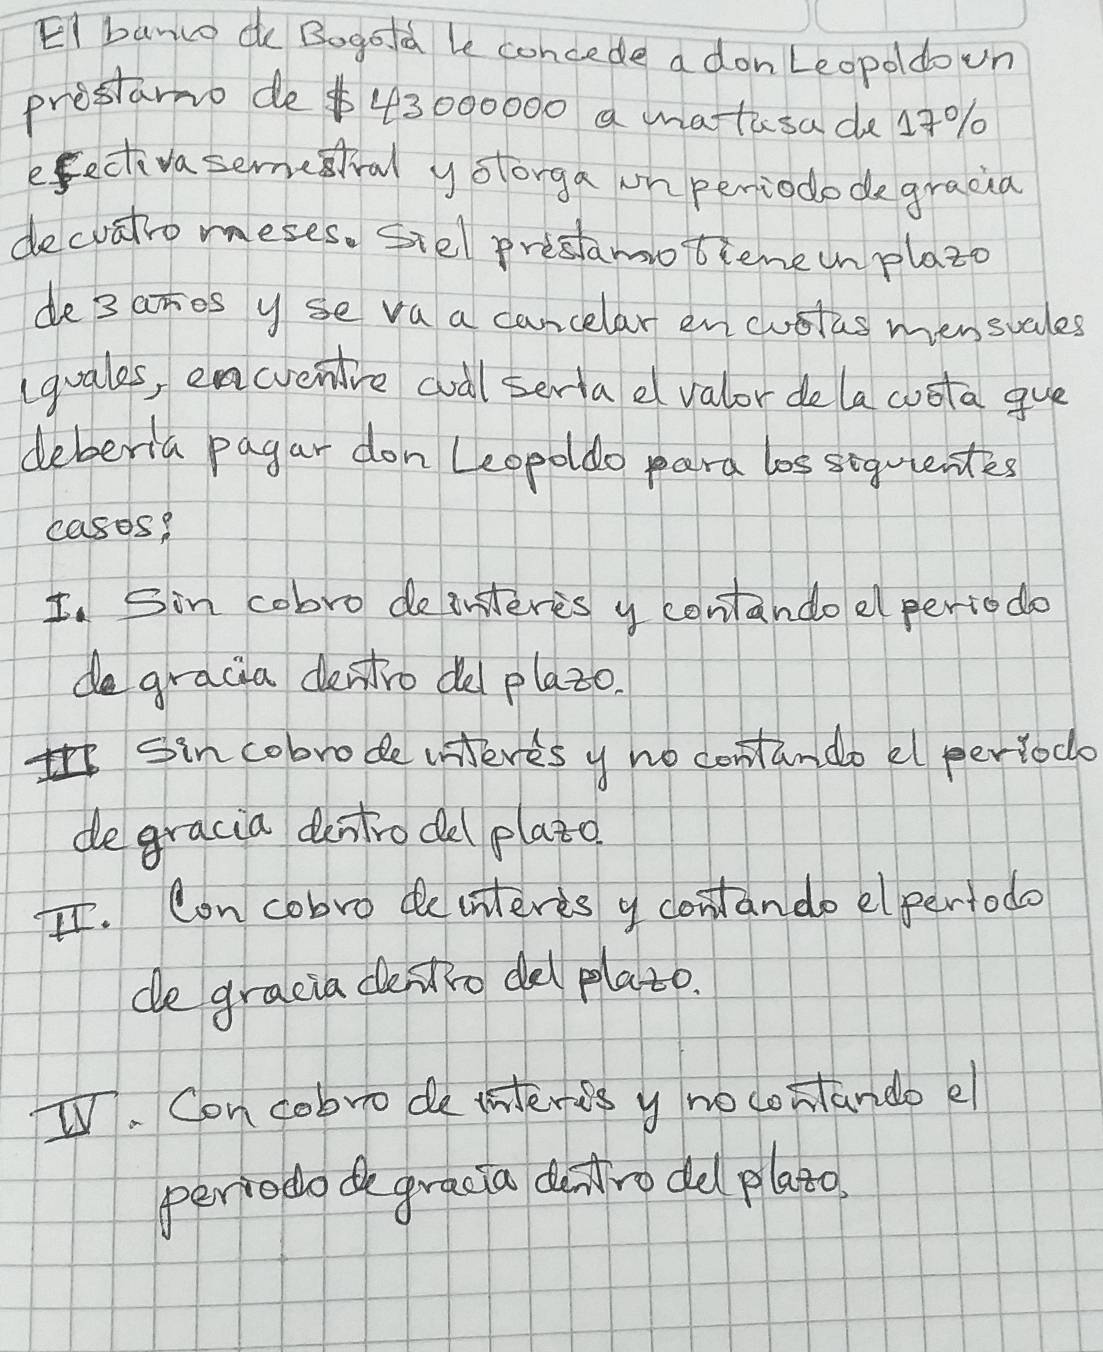 El banco de Bogotá le concede a don Leopoldo un
préstamo de $43000000 a una tasa de 17%
efectiva semestral y otorga un periodo de gracia
de cuatro meses. Si el préstamo tiene un plazo
de 3 años y se va a cancelar en cuotas mensuales
iguales, encuentre cuál sería el valor de la cuota que
debería pagar don Leopoldo para los siguientes
casos:
I. Sin cobro de interés y contando el periodo
de gracia dentro del plazo.
III Sin cobro de interés y no contando el periodo
de gracia dentro del plazo.
II. Con cobro de interés y contando el periodo
de gracia dentro del plazo.
IV. Con cobro de interés y no contando el
periodo de gracia dentro del plazo.